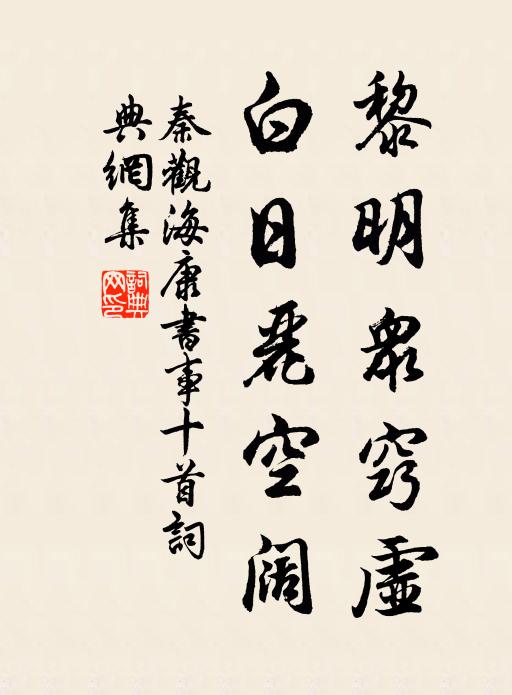 黎明衆竅虛
白日麗空阔
秦觀海康書事十首詞
典網集
詞典
网印